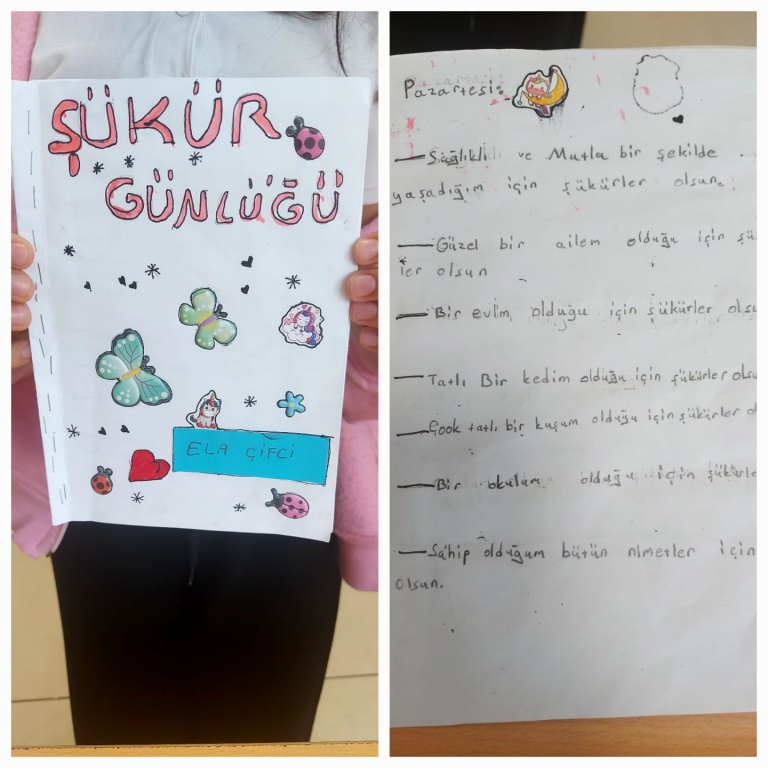 ŞÜKÜR
GÜNLÜĞÜ
ELA ÇİFCİ
Pazartesi:
Sağlıklı ve Mutlu bir şekilde
yaşadığım için şükürler olsun.
Güzel bir ailem olduğu için şü
ler olsun
Bir evim olduğu için şükürler olsu
Tatlı Bir kedim olduğu için şükürler olsu
Çook tatlı bir kuşum olduğu için şükürler o
Bir okulum olduğu için şükürle
Sahip olduğum bütün nimetler için
olsun.